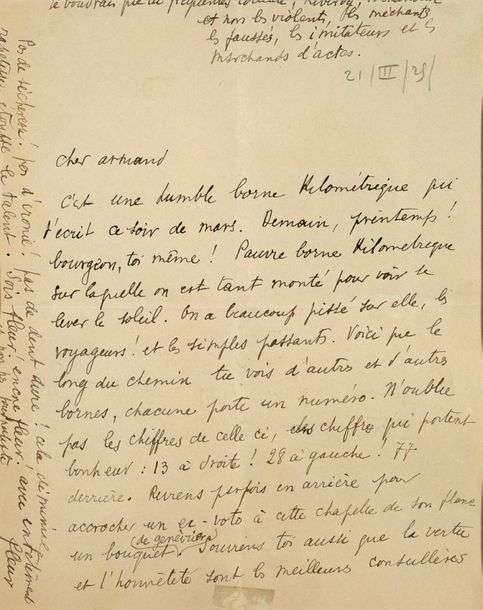 et non les violents, les méchants,
les faussés, les imitateurs et les
marchands d'actes.
21/III/25/
cher armand
c'est une humble borne Kilométrique qui
t'écrit ce soir de mars. Demain, printemps !
bourgeon, toi même ! Pauvre borne Kilometrique
sur laquelle on est tant monté pour voir se
lever le soleil. On a beaucoup pissé sur elle, les
voyageurs ! et les simples passants. Voici que le
long du chemin tu vois d'autres et d'autres
bornes, chacune porte un numéro. N'oublie
pas les chiffres de celle ci, chiffre qui portent
bonheur : 13 à droite ! 28 à gauche ! 77
derrière. Reviens parfois en arrière pour
accrocher un ex-voto à cette chapelle de son flanc
un bouquet (de genévriers). Souviens toi aussi que la vertu
et l'honnêteté sont les meilleurs conseillères
Pas de sécheresse ! pas d'ironie ! pas de dent dure ! cela, diminue
étouffe le talent. Sois fleur ! encore fleur ! avec
fleur